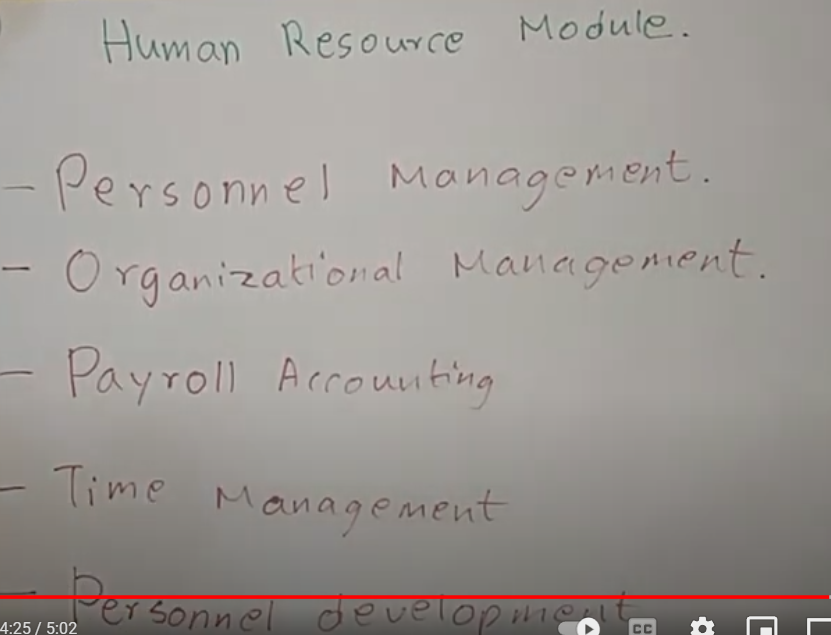 Human Resource Module.
- Personnel Management.
- Organizational Management.
- Payroll Accounting
- Time Management
- Personnel development
4:25 / 5:02
CC